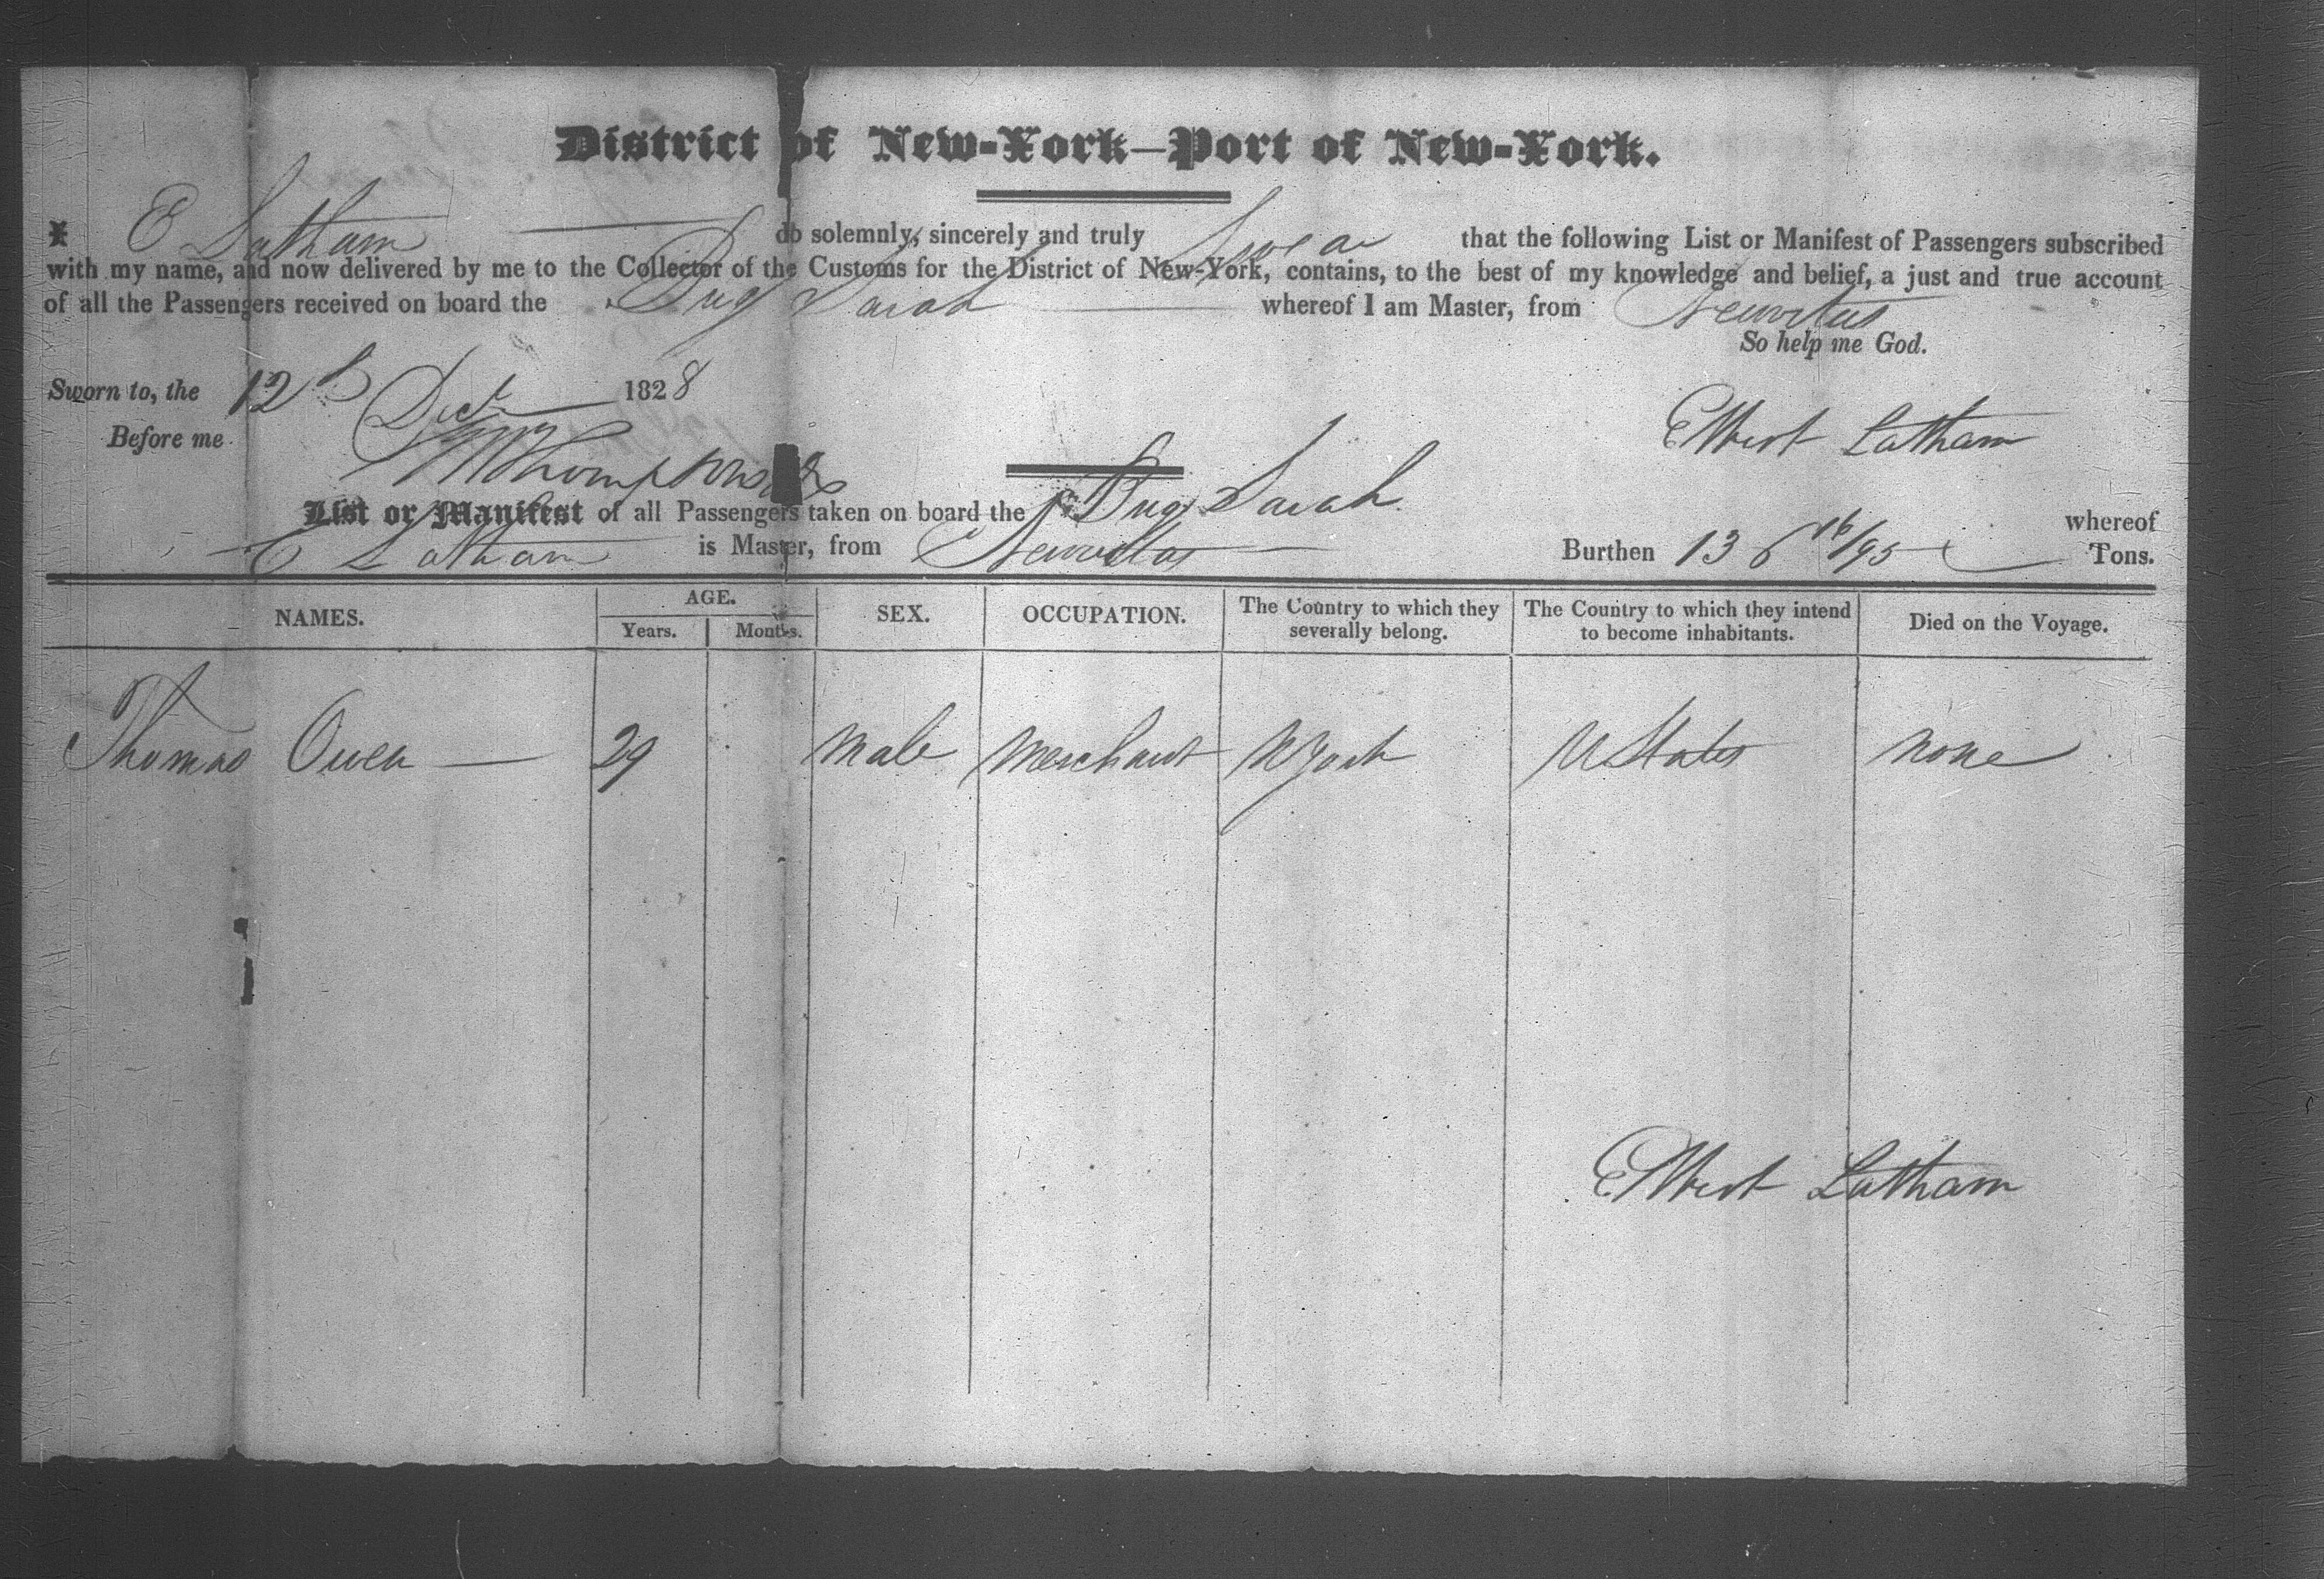 District of New-York—Port of New-York.
I E Latham do solemnly, sincerely and truly Swear that the following List or Manifest of Passengers subscribed
with my name, and now delivered by me to the Collector of the Customs for the District of New-York, contains, to the best of my knowledge and belief, a just and true account
of all the Passengers received on board the Brig Sarah whereof I am Master, from Neuvitas
So help me God.
Sworn to, the 12th Decr 1828
Before me
Elbert Latham
List or Manifest of all Passengers taken on board the Brig Sarah whereof
E Latham is Master, from Neuvitas Burthen 136 16/95 Tons.
NAMES. AGE. Years. Months. SEX. OCCUPATION. The Country to which they severally belong. The Country to which they intend to become inhabitants. Died on the Voyage.
Thomas Owen — 29 male merchant N York U States none
Elbert Latham